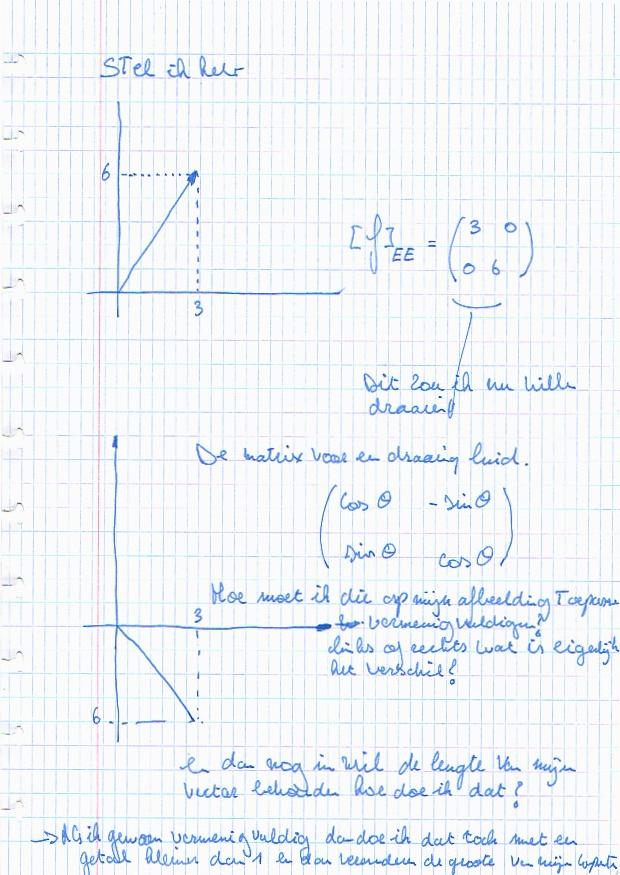 Stel ik heb
6
3
[f]EE = (3 0
0 6)
Dit zou ik nu wille
draaien
De matrix voor en draaing luid.
(cos θ -sin θ
sin θ cos θ)
Hoe moet ik die op mijn afbeelding Toepasse
vermenigvuldigen?
links of rechts wat is eigenlijk
het verschil?
3
6
en dan nog ik wil de lengte van mijn
vector behouden hoe doe ik dat?
→ Als ik gewoon vermenigvuldig dan doe ik dat toch met en
getal kleiner dan 1 en dan veranderen de groote van mijn